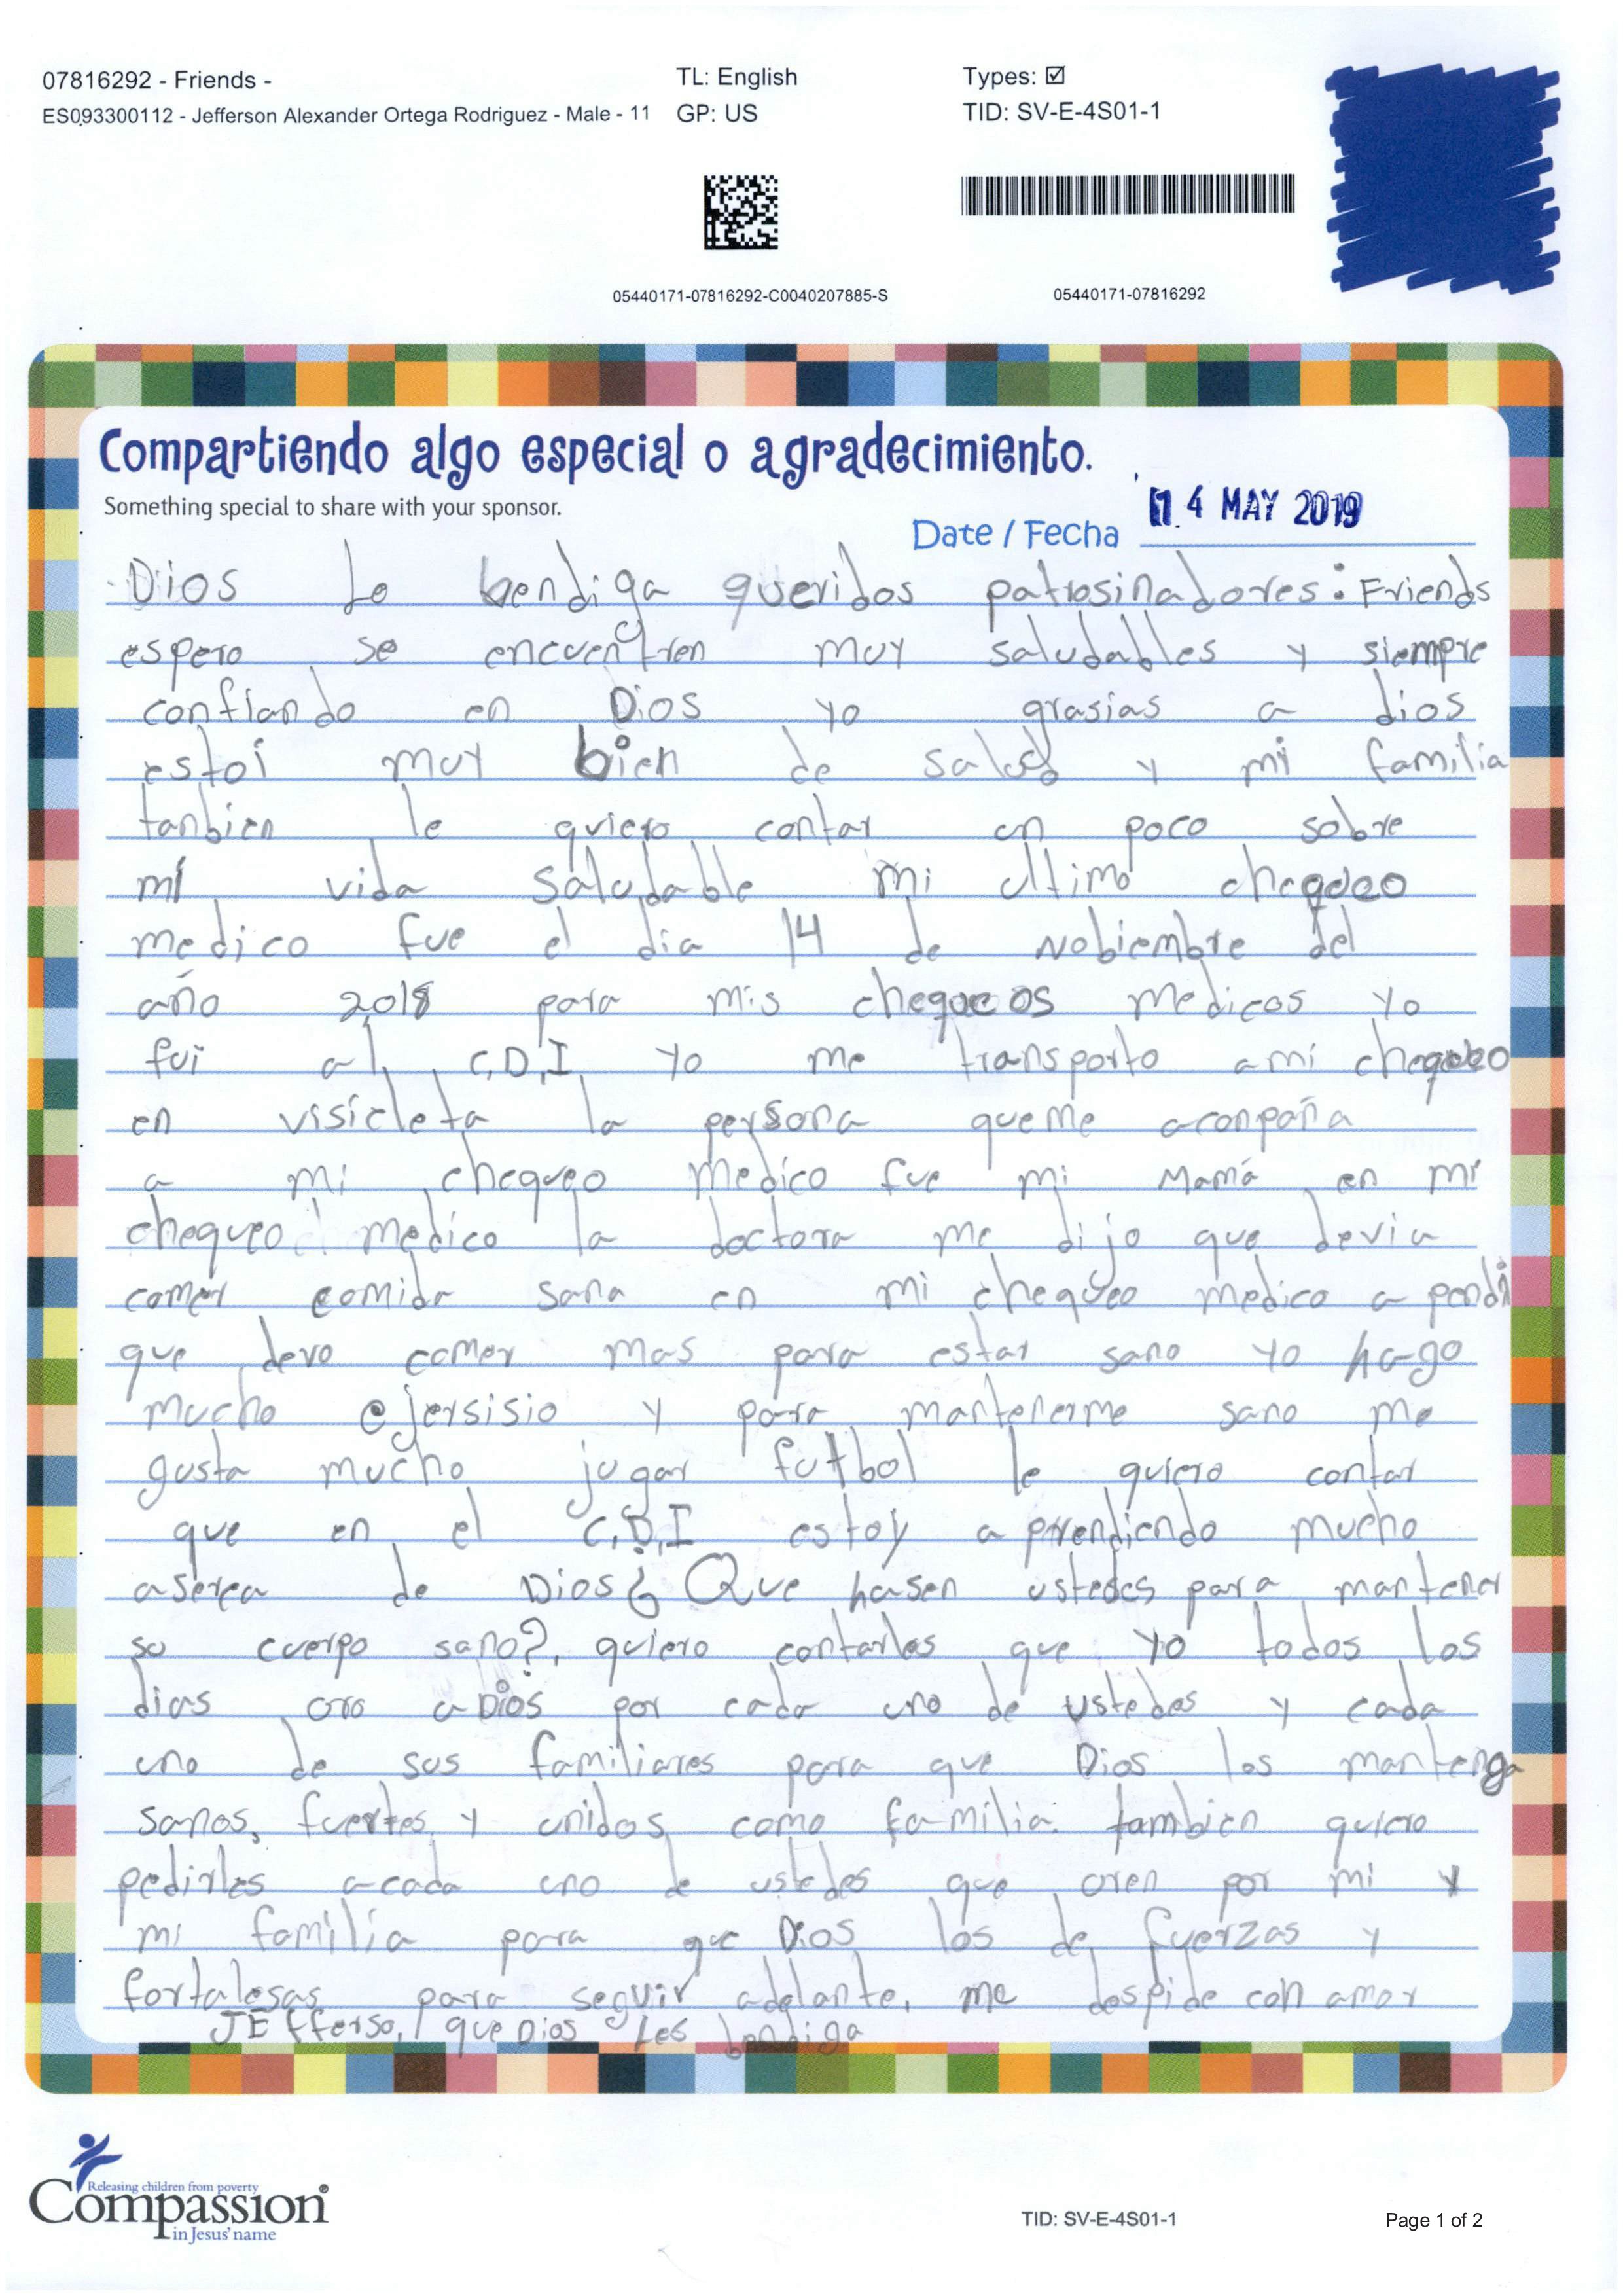 07816292 - Friends -
TL: English
Types: ☑
ES093300112 - Jefferson Alexander Ortega Rodriguez - Male - 11
GP: US
TID: SV-E-4S01-1
05440171-07816292-C0040207885-S
05440171-07816292
Compartiendo algo especial o agradecimiento.
Something special to share with your sponsor.
Date / Fecha 14 MAY 2019
Dios Lo bendiga queridos patrosinadores: Friends
espero se encuentren muy saludables y siempre
confiando en Dios yo grasias a dios
estoi muy bien de salud y mi familia
tanbien le quiero contar un poco sobre
mi vida saludable mi ultimo chequeo
medico fue el dia 14 de Nobiembre del
año 2018 para mis chequeos medicos yo
fui al C.D.I yo me transporto ami chequeo
en visicleta la persona queme aconpaña
a mi chequeo medico fue mi Mamá en mi
chequeo medico la doctora me dijo que devia
comer comida sana en mi chequeo medico a pendi
que devo comer mas para estar sano yo hago
mucho ejersisio y para mantenerme sano me
gusta mucho jugar futbol le quiero contar
que en el C.D.I estoy a prendiendo mucho
aserca de Dios ¿ Que hasen ustedes para mantener
su cuerpo sano?, quiero contarles que yo todos los
dias oro a Dios por cada uno de ustedes y cada
uno de sus familiares para que Dios los mantenga
sanos, fuertes y unidos como familia. tambien quiero
pedirles acada uno de ustedes que oren por mi y
mi familia para que Dios los de fuerzas y
fortalesas para seguir adelante, me despide con amor
JEfferso, que Dios Les bendiga
Releasing children from poverty
Compassion®
in Jesus' name
TID: SV-E-4S01-1
Page 1 of 2